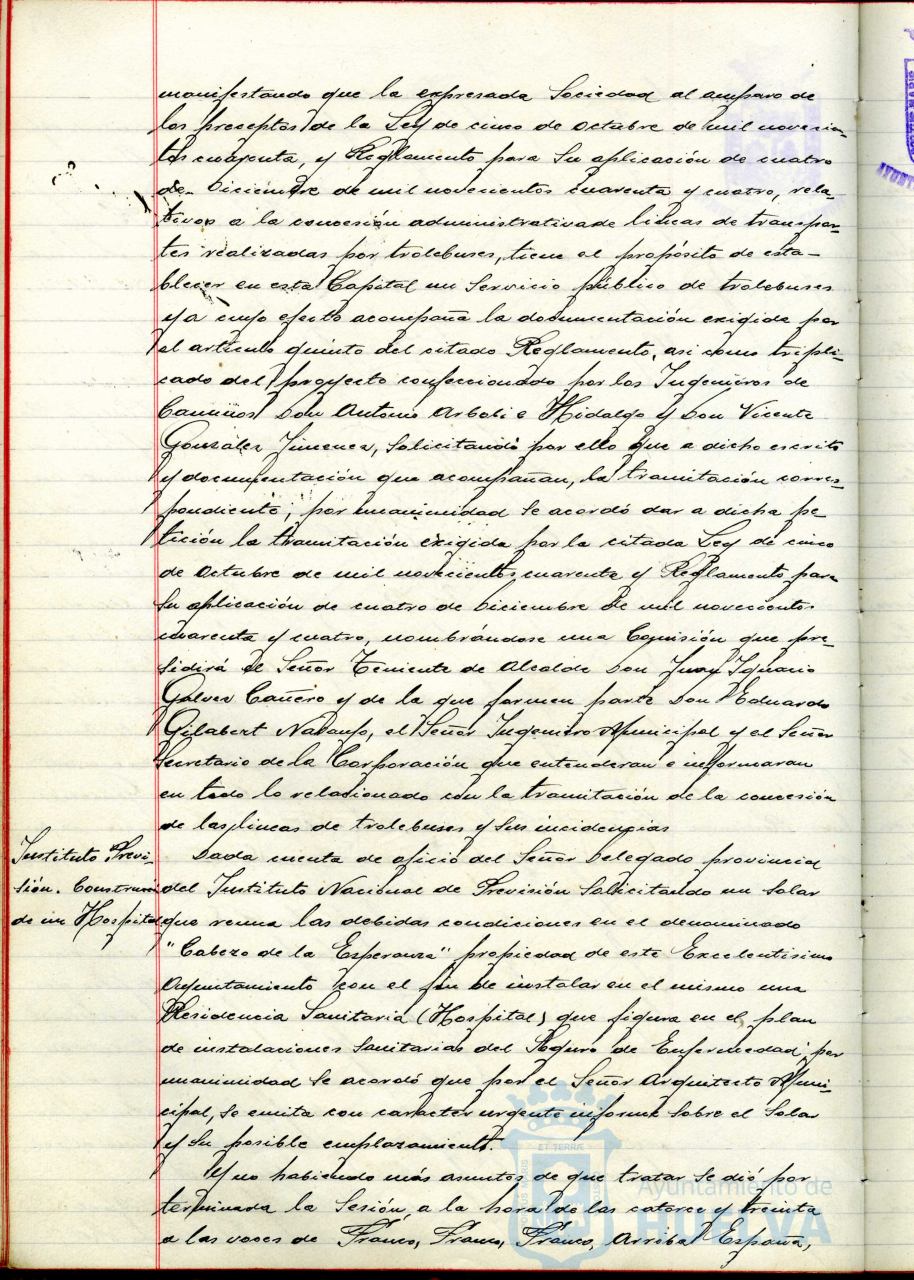 manifestando que la expresada Sociedad al amparo de
los preceptos de la Ley de cinco de octubre de mil novecien-
tos cuarenta, y Reglamento para su aplicación de cuatro
de Diciembre de mil novecientos cuarenta y cuatro, rela-
tivos a la concesión administrativa de lineas de transpor-
tes realizadas por trolebuses, tiene el propósito de esta-
blecer en esta Capital un Servicio público de trolebuses
y a cuyo efecto acompaña la documentación exigida por
el articulo quinto del citado Reglamento, asi como tripli-
cado del proyecto confeccionado por los Ingenieros de
Caminos Don Antonio Arboli e Hidalgo y Don Vicente
González Jimenez, Solicitando por ello que a dicho escrito
y documentación que acompañan, la tramitación corres-
pondiente; por unanimidad se acordó dar a dicha pe-
tición la tramitación exigida por la citada Ley de cinco
de Octubre de mil novecientos cuarenta y Reglamento para
su aplicación de cuatro de Diciembre de mil novecientos
cuarenta y cuatro, nombrándose una Comisión que pre-
sidirá el Señor Teniente de Alcalde Don Juan Ignacio
Galvez Cañero y de la que formen parte Don Eduardo
Gilabert Naranjo, el Señor Ingeniero Municipal y el Señor
Secretario de la Corporación que entenderan e informaran
en todo lo relacionado con la tramitación de la concesión
de las lineas de trolebuses y sus incidencias
Instituto Previ-
sión. Construcción
de un Hospital
Dada cuenta de oficio del Señor Delegado provincial
del Instituto Nacional de Previsión Solicitando un Solar
que reuna las debidas condiciones en el denominado
"Cabezo de la Esperanza" propiedad de este Excelentisimo
Ayuntamiento con el fin de instalar en el mismo una
Residencia Sanitaria (Hospital) que figura en el plan
de instalaciones Sanitarias del Seguro de Enfermedad; por
unanimidad se acordó que por el Señor Arquitecto Muni-
cipal, se emita con caracter urgente informe sobre el Solar
y su posible emplazamiento.
Y no habiendo más asuntos de que tratar se dió por
terminada la Sesión, a la hora de las catorce y treinta
a las voces de Franco, Franco, Franco, Arriba España,
Ayuntamiento de
HUELVA
ET TERRÆ